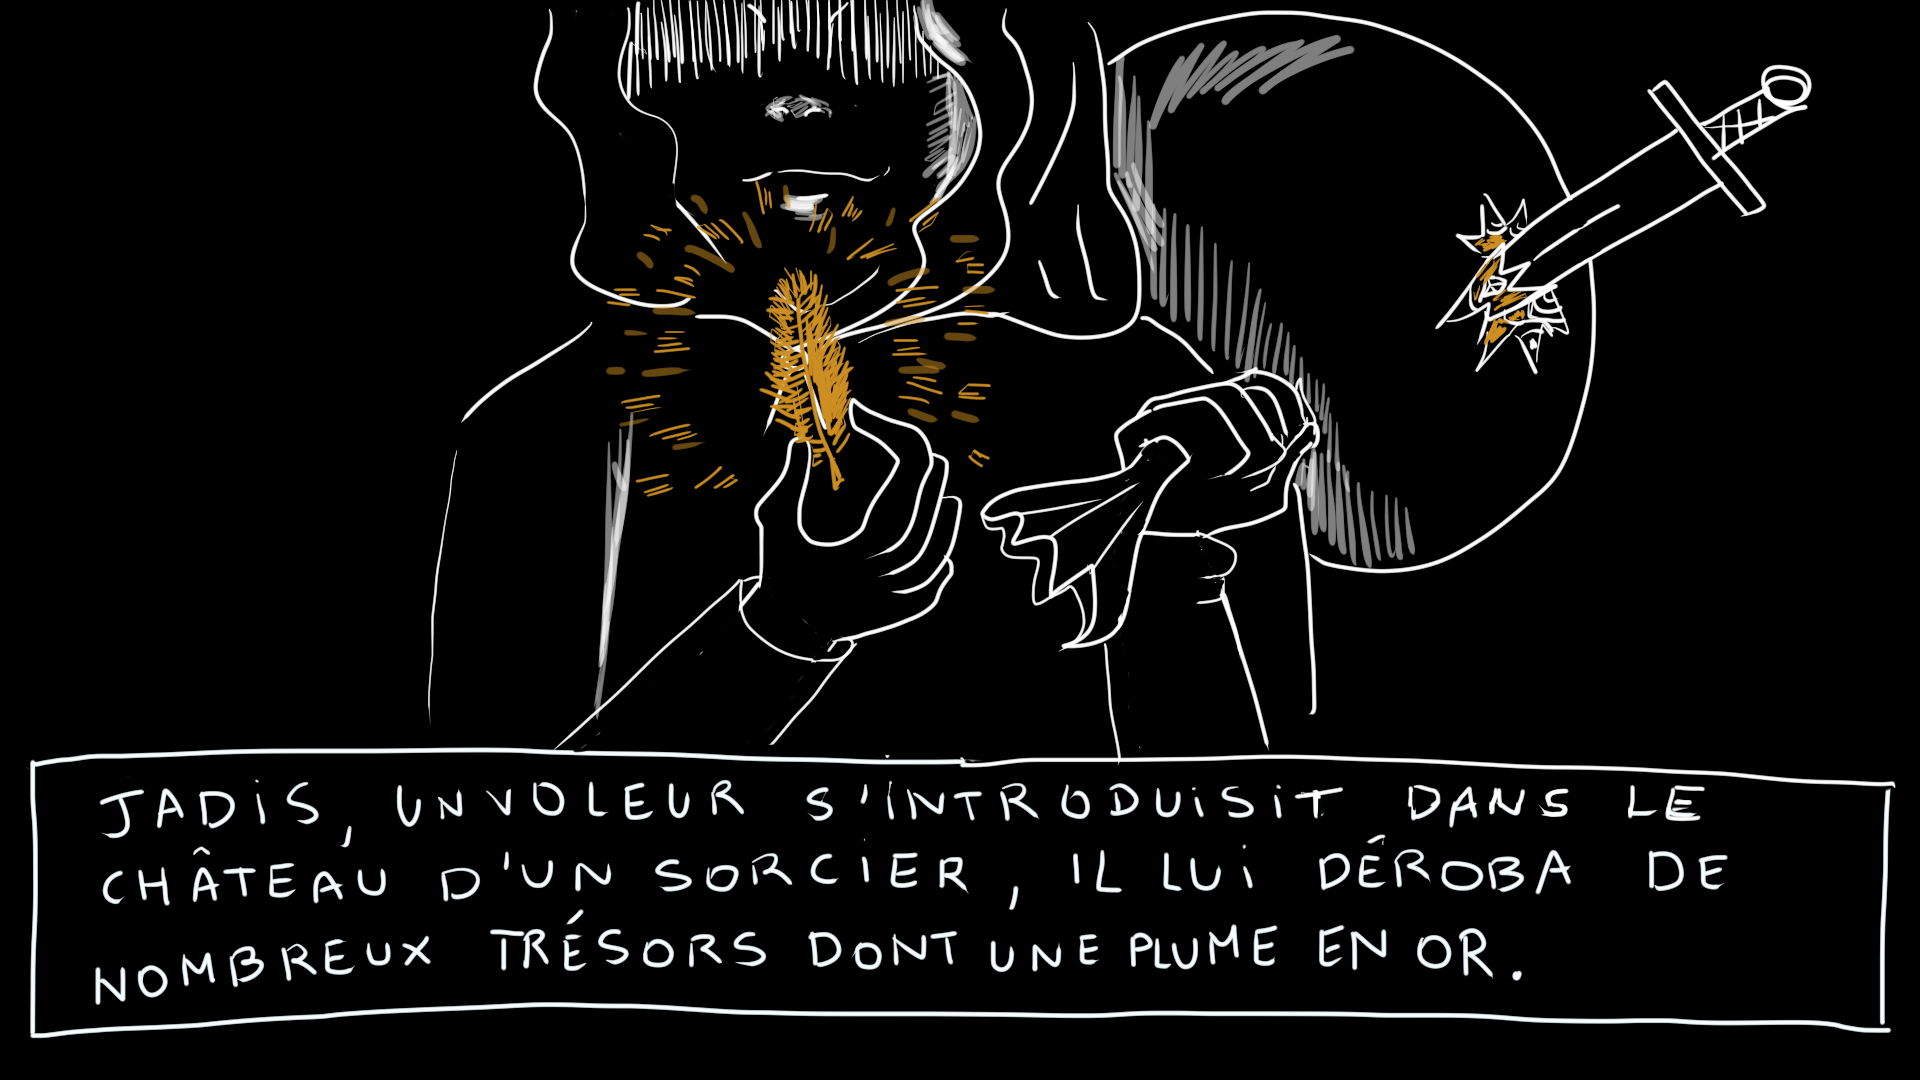 JADIS, UN VOLEUR S'INTRODUISIT DANS LE
CHÂTEAU D'UN SORCIER, IL LUI DÉROBA DE
NOMBREUX TRÉSORS DONT UNE PLUME EN OR.